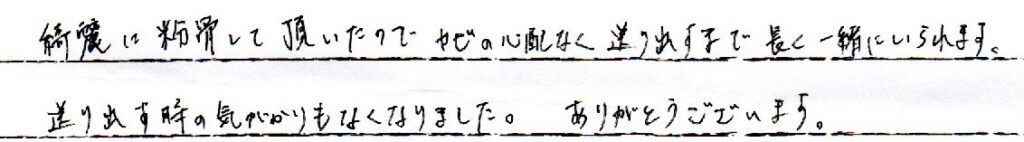 綺麗に粉骨して頂いたので カビの心配なく 送り出すまで 長く一緒にいられます。
送り出す時の気がかりもなくなりました。 ありがとうございます。